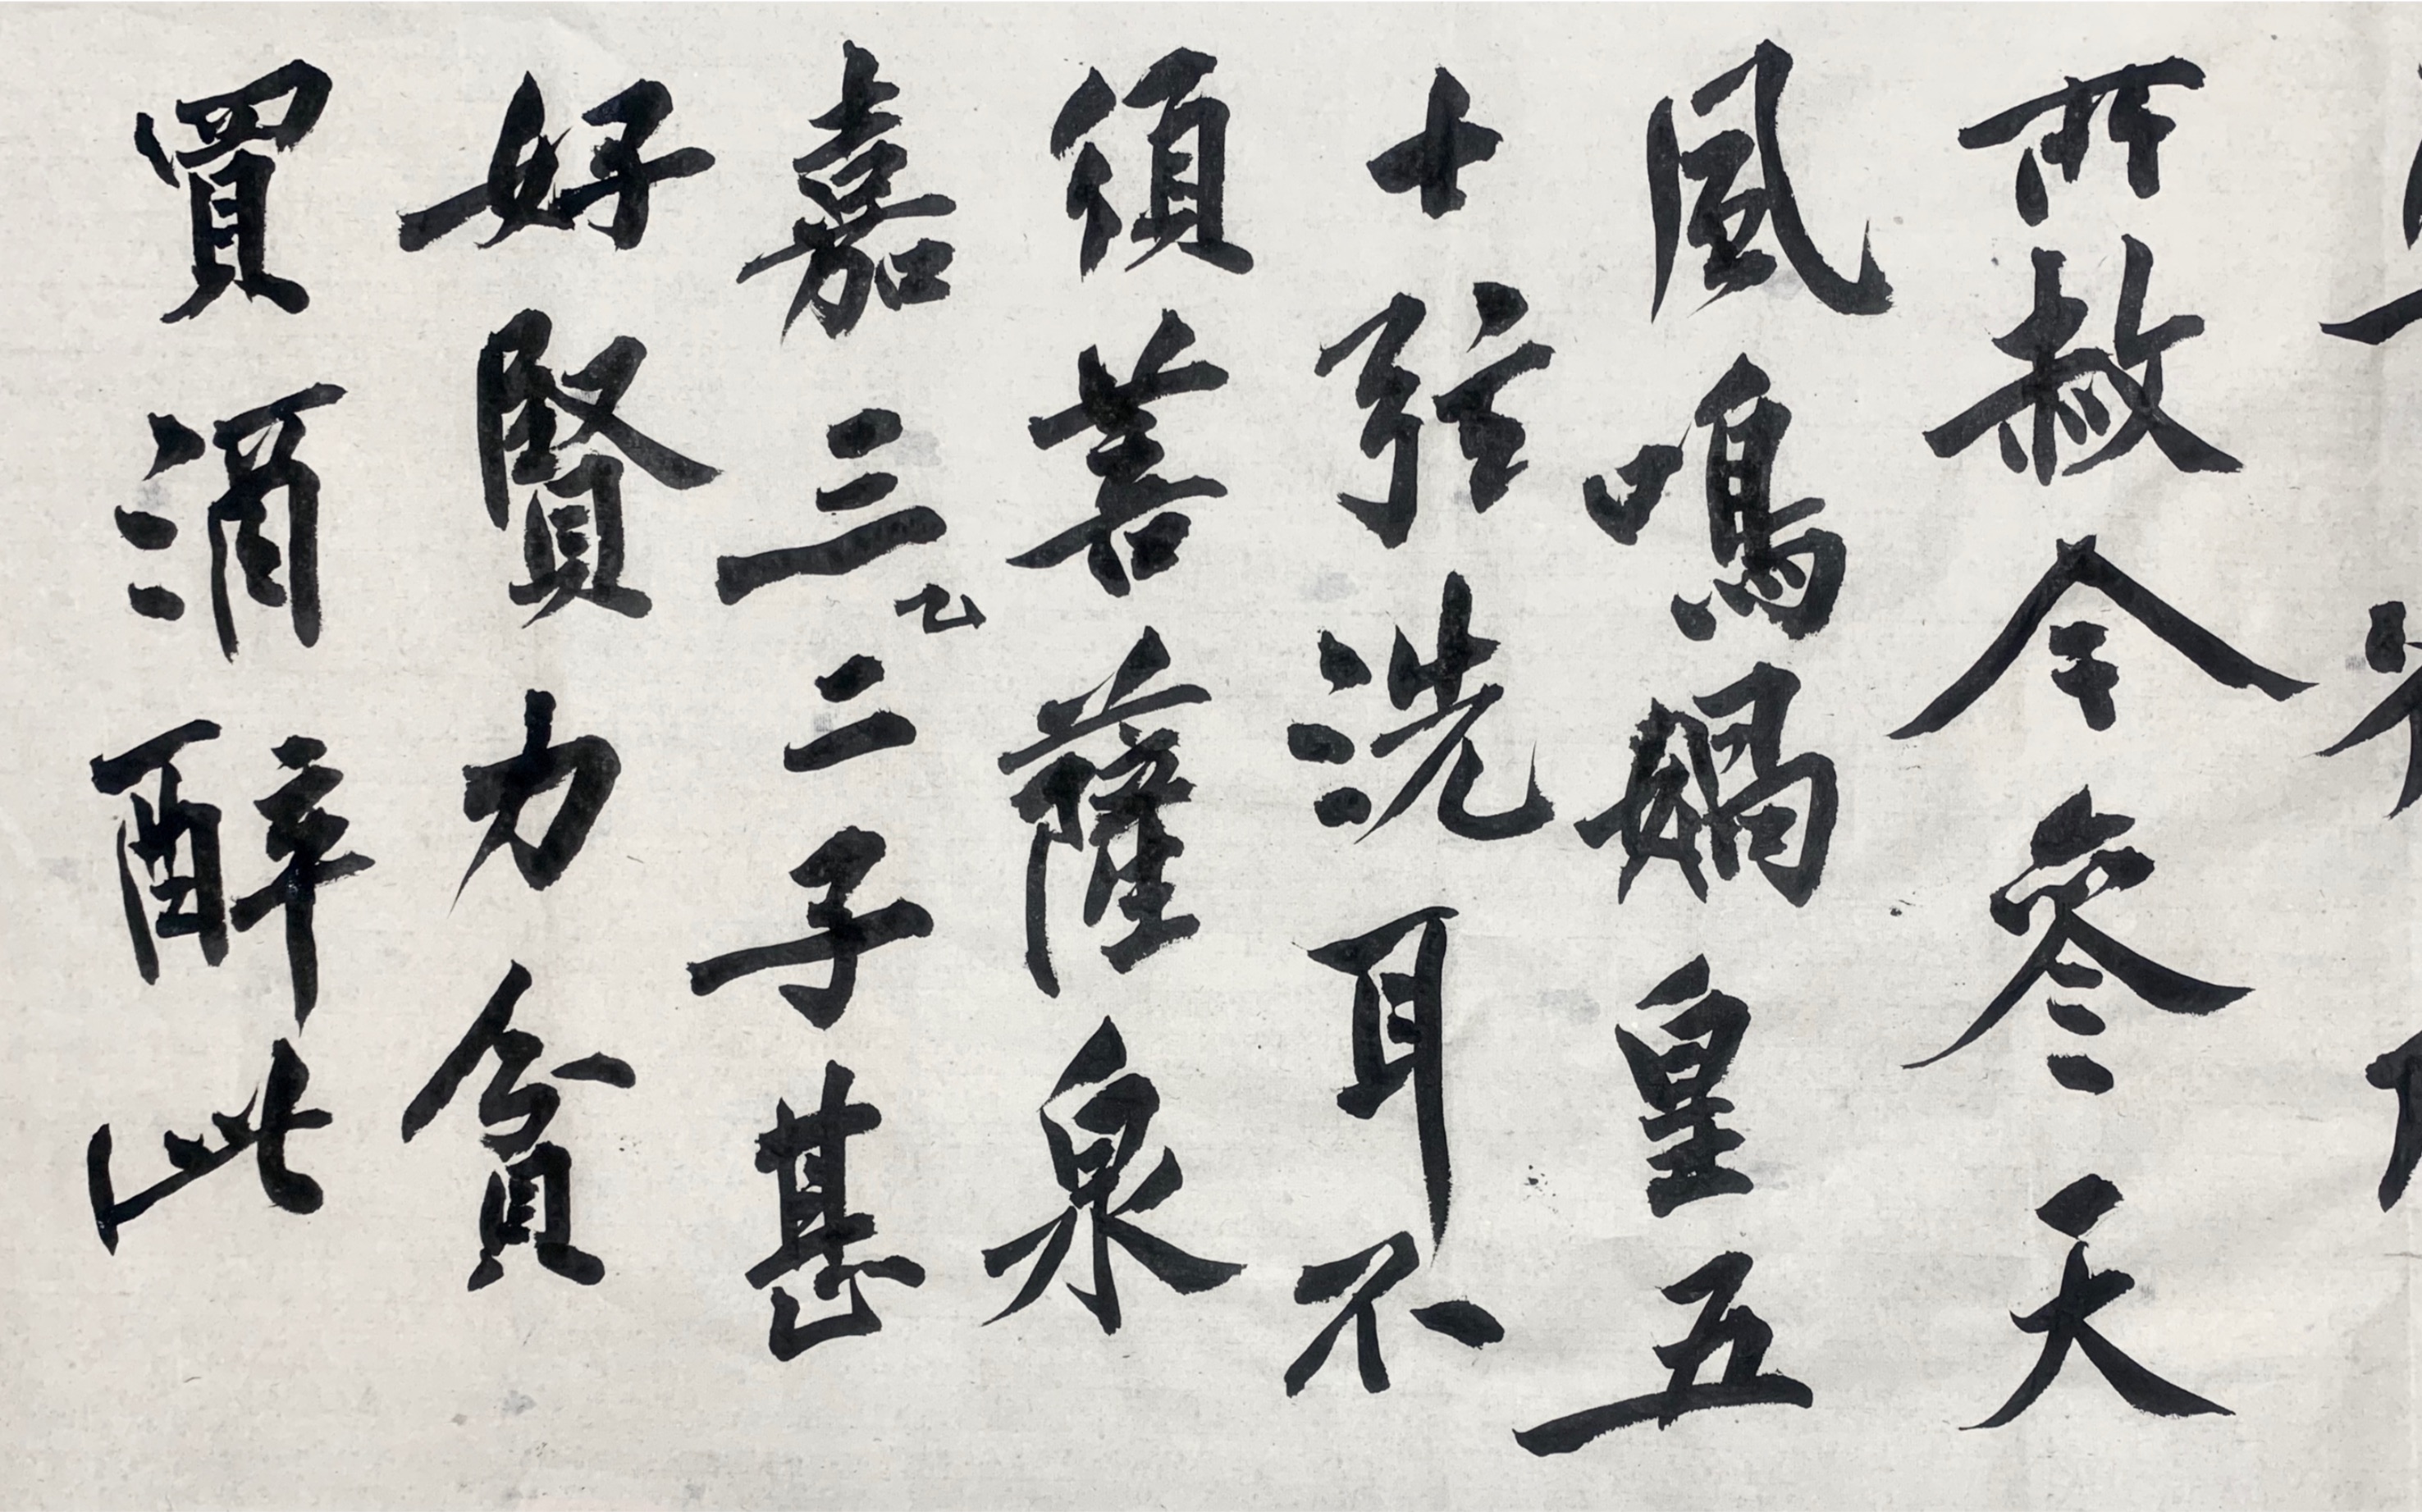 所赦令参天
風鳴媧皇五
十弦洗耳不
須菩薩泉
嘉三二子甚
好賢力貧
買酒醉此